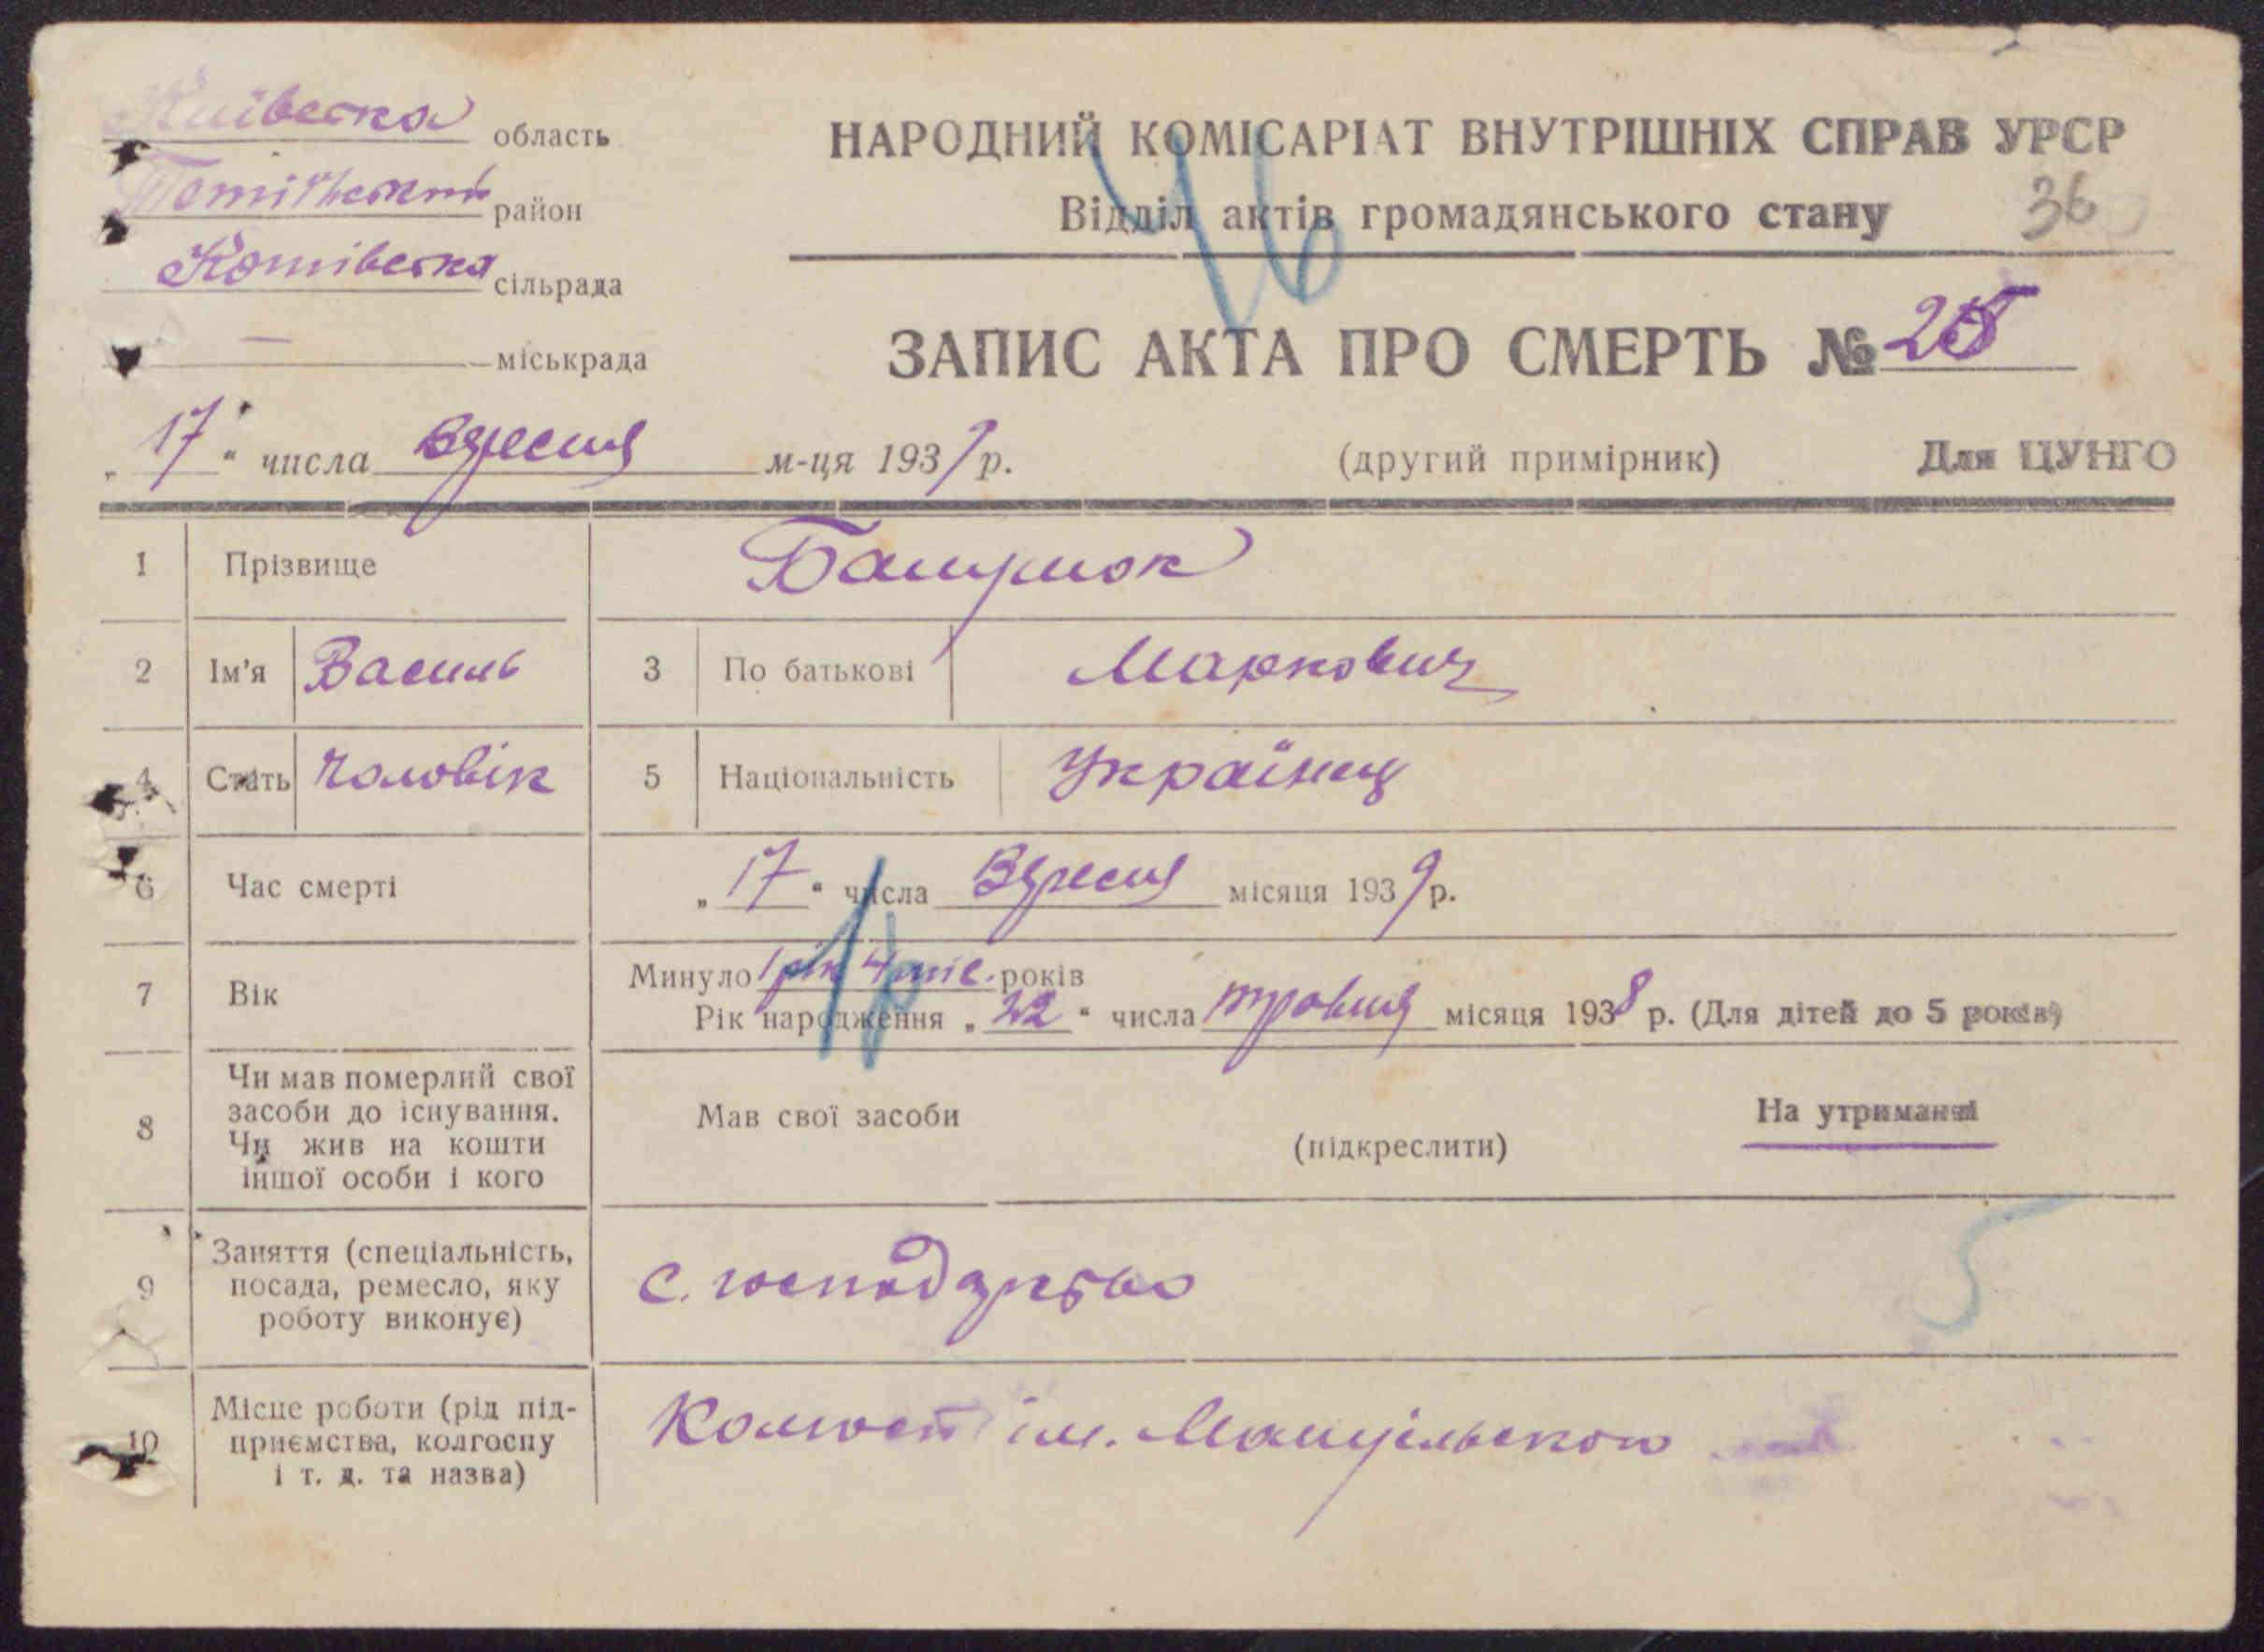 Київська область
Тетіївський район
сільрада
— міськрада
НАРОДНИЙ КОМІСАРІАТ ВНУТРІШНІХ СПРАВ УРСР
Відділ актів громадянського стану
36
46
ЗАПИС АКТА ПРО СМЕРТЬ №
„17“ числа Вересня м-ця 1939 р.
(другий примірник) Для ЦУНГО
1 Прізвище
2 Ім'я Василь 3 По батькові Маркович
4 Стать Чоловік 5 Національність Українец
6 Час смерті „17“ числа Вересня місяця 1939 р.
7 Вік Минуло 1 рік 4 міс. років
Рік народження „22“ числа травня місяця 1938 р. (Для дітей до 5 років)
1р
8 Чи мав померлий свої
засоби до існування.
Чи жив на кошти
іншої особи і кого
Мав свої засоби (підкреслити) На утриманні
9 Заняття (спеціальність,
посада, ремесло, яку
роботу виконує)
с. господарство
5
10 Місце роботи (рід під-
приємства, колгоспу
і т. д. та назва)
Колгосп ім. Мануїльского